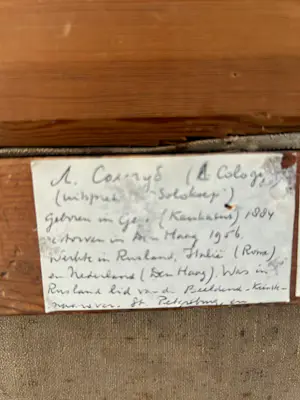 Л. Сологуб (L Cologu
(uitspraak Solokoep)
Geboren in (Kaukasus) 1884
gestorven in Den Haag 1956.
Werkte in Rusland, Italië (Rome)
en Nederland (Den Haag). Was in
Rusland lid van de Beeldend-Kunst-
St Petersburg, en